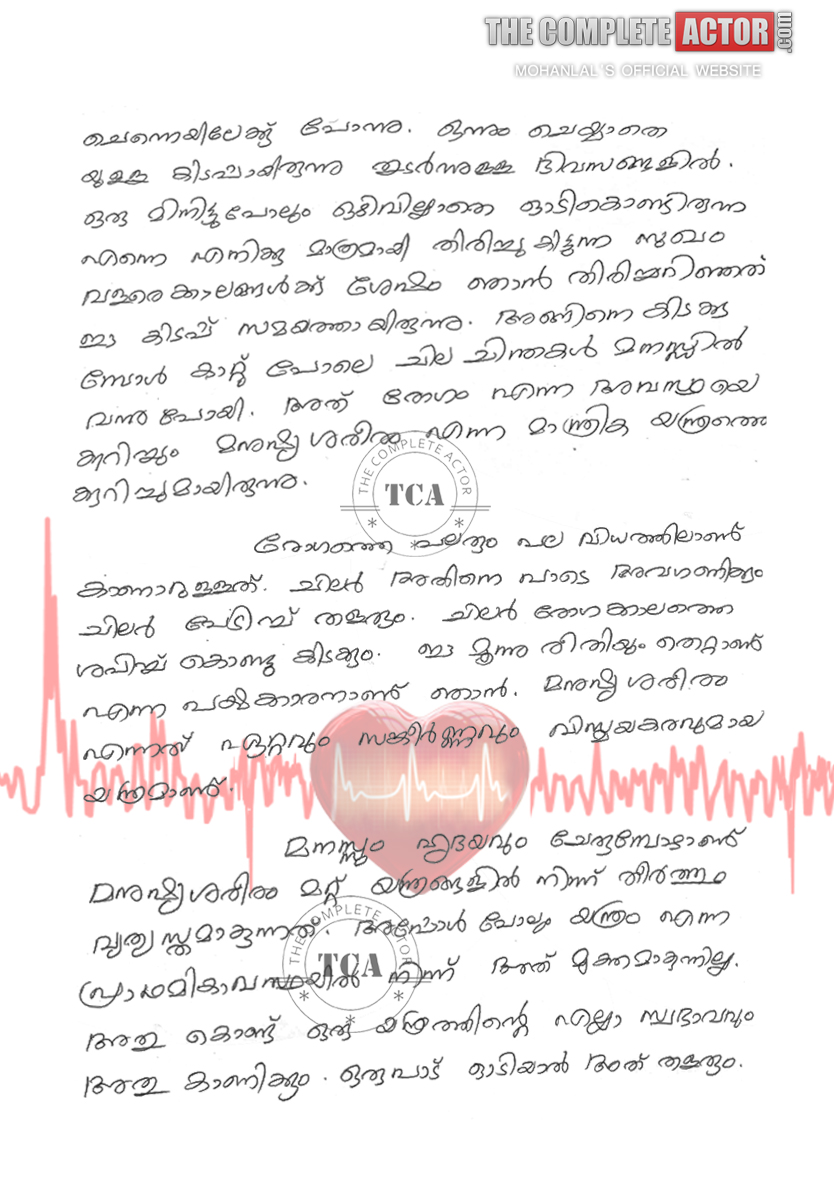 THE COMPLETE ACTOR.com
MOHANLAL'S OFFICIAL WEBSITE
ചെന്നൈയിലേക്ക് പോന്നു. ഒന്നും ചെയ്യാതെ
യുള്ള കിടപ്പായിരുന്നു തുടർന്നുള്ള ദിവസങ്ങളിൽ.
ഒരു മിനിട്ടുപോലും ഒഴിവില്ലാതെ ഓടികൊണ്ടിരുന്ന
എന്നെ എനിക്കു മാത്രമായി തിരിച്ചു കിട്ടുന്ന സുഖം
വളരെക്കാലങ്ങൾക്ക് ശേഷം ഞാൻ തിരിച്ചറിഞ്ഞത്
ഈ കിടപ്പ് സമയത്തായിരുന്നു. അങ്ങിനെ കിടക്കു
മ്പോൾ കാറ്റു പോലെ ചില ചിന്തകൾ മനസ്സിൽ
വന്നുപോയി. അത് രോഗം എന്ന അവസ്ഥയെ
കുറിച്ചും മനുഷ്യശരീരം എന്ന മാന്ത്രിക യന്ത്രത്തെ
കുറിച്ചുമായിരുന്നു.
THE COMPLETE ACTOR
TCA
രോഗത്തെ പലരും പല വിധത്തിലാണ്
കാണാറുള്ളത്. ചിലർ അതിനെ പാടെ അവഗണിക്കും
ചിലർ പേടിച്ച് തളരും. ചിലർ രോഗകാലത്തെ
ശപിച്ച് കൊണ്ടു കിടക്കും. ഈ മൂന്നു രീതിയും തെറ്റാണ്
എന്ന പക്ഷക്കാരനാണ് ഞാൻ. മനുഷ്യശരീരം
എന്നത് ഏറ്റവും സങ്കീർണ്ണവും വിസ്മയകരവുമായ
യന്ത്രമാണ്.
മനസ്സും ഹൃദയവും ചേരുമ്പോഴാണ്
മനുഷ്യശരീരം മറ്റ് യന്ത്രങ്ങളിൽ നിന്ന് തീർത്തും
വ്യത്യസ്തമാകുന്നത്. അപ്പോൾ പോലും യന്ത്രം എന്ന
പ്രാഥമികാവസ്ഥയിൽ നിന്ന് അത് മുക്തമാകുന്നില്ല.
അതു കൊണ്ട് ഒരു യന്ത്രത്തിന്റെ എല്ലാ സ്വഭാവവും
അതു കാണിക്കും. ഒരുപാട് ഓടിയാൽ അത് തളരും.
THE COMPLETE ACTOR
TCA